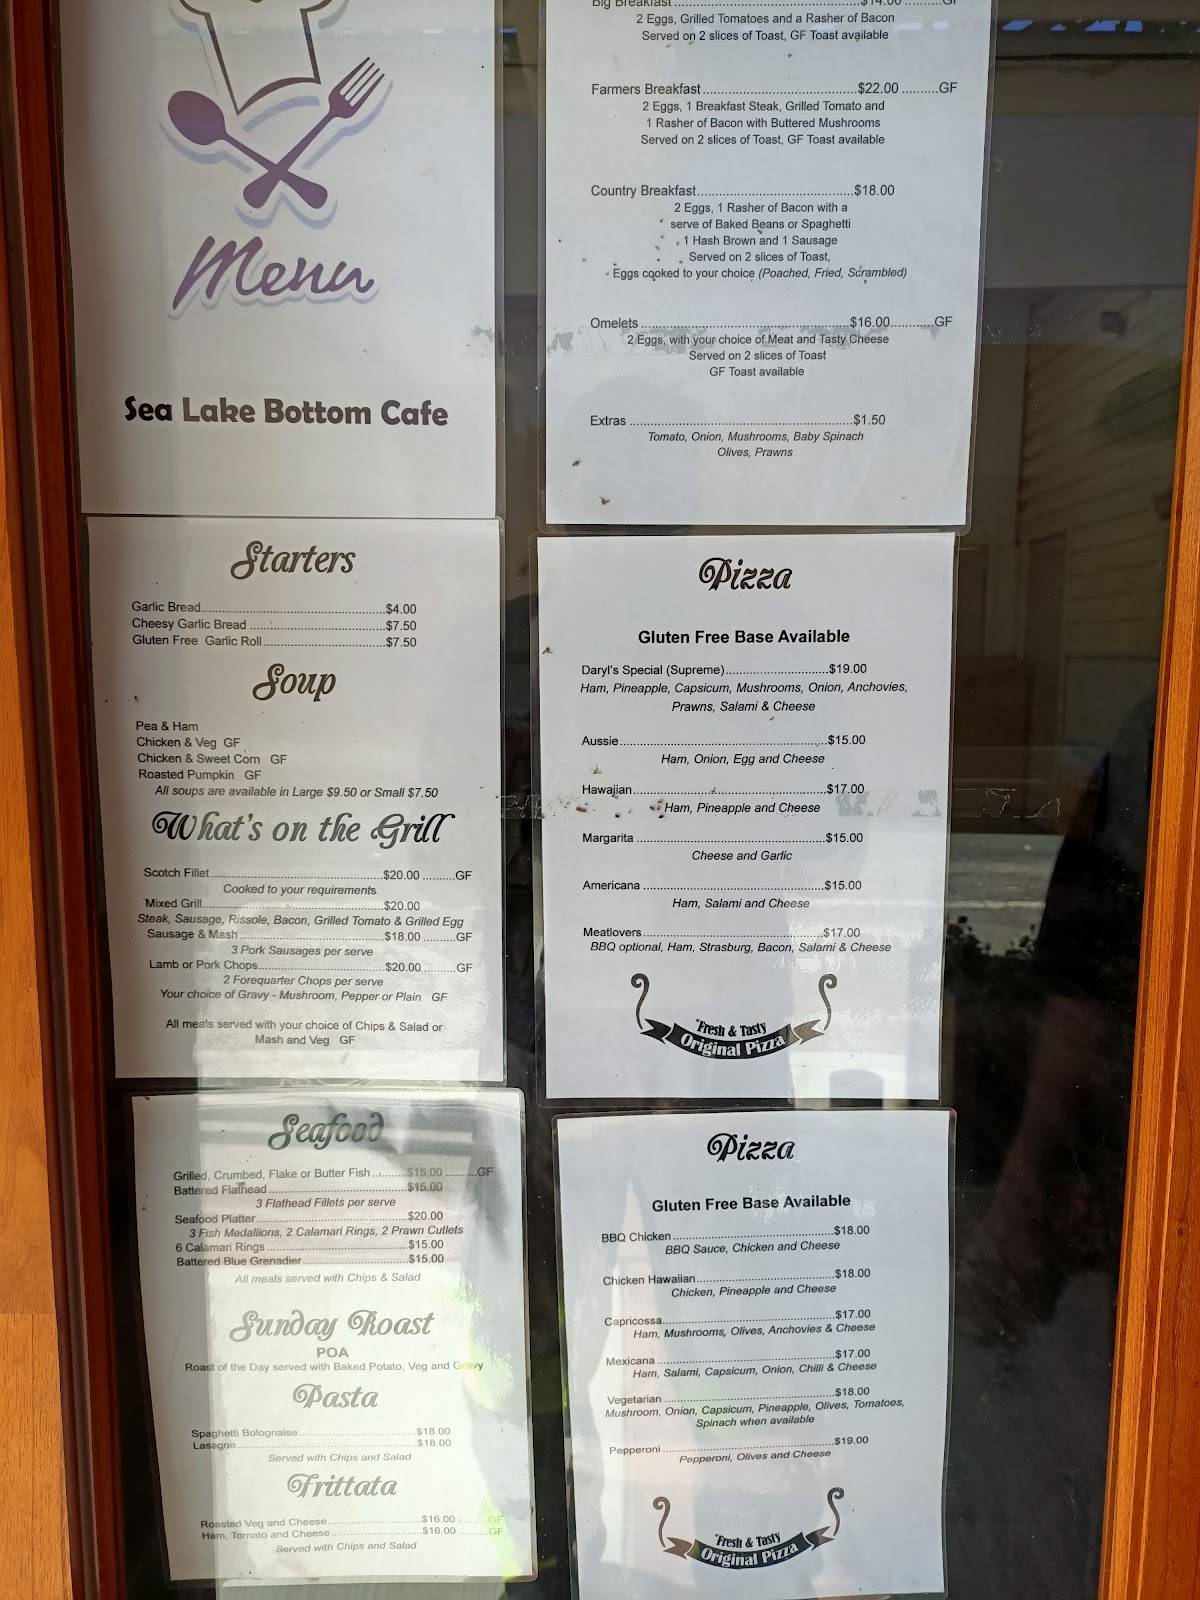 Menu
Sea Lake Bottom Cafe
Big Breakfast..........$14.00..........GF
2 Eggs, Grilled Tomatoes and a Rasher of Bacon
Served on 2 slices of Toast, GF Toast available
Farmers Breakfast..........$22.00..........GF
2 Eggs, 1 Breakfast Steak, Grilled Tomato and
1 Rasher of Bacon with Buttered Mushrooms
Served on 2 slices of Toast, GF Toast available
Country Breakfast..........$18.00
2 Eggs, 1 Rasher of Bacon with a
serve of Baked Beans or Spaghetti
1 Hash Brown and 1 Sausage
Served on 2 slices of Toast,
Eggs cooked to your choice (Poached, Fried, Scrambled)
Omelets..........$16.00..........GF
2 Eggs, with your choice of Meat and Tasty Cheese
Served on 2 slices of Toast
GF Toast available
Extras..........$1.50
Tomato, Onion, Mushrooms, Baby Spinach
Olives, Prawns
Starters
Garlic Bread..........$4.00
Cheesy Garlic Bread..........$7.50
Gluten Free Garlic Roll..........$7.50
Soup
Pea & Ham
Chicken & Veg GF
Chicken & Sweet Corn GF
Roasted Pumpkin GF
All soups are available in Large $9.50 or Small $7.50
What's on the Grill
Scotch Fillet..........$20.00..........GF
Cooked to your requirements
Mixed Grill..........$20.00
Steak, Sausage, Rissole, Bacon, Grilled Tomato & Grilled Egg
Sausage & Mash..........$18.00..........GF
3 Pork Sausages per serve
Lamb or Pork Chops..........$20.00..........GF
2 Forequarter Chops per serve
Your choice of Gravy - Mushroom, Pepper or Plain GF
All meals served with your choice of Chips & Salad or
Mash and Veg GF
Pizza
Gluten Free Base Available
Daryl's Special (Supreme)..........$19.00
Ham, Pineapple, Capsicum, Mushrooms, Onion, Anchovies,
Prawns, Salami & Cheese
Aussie..........$15.00
Ham, Onion, Egg and Cheese
Hawaiian..........$17.00
Ham, Pineapple and Cheese
Margarita..........$15.00
Cheese and Garlic
Americana..........$15.00
Ham, Salami and Cheese
Meatlovers..........$17.00
BBQ optional, Ham, Strasburg, Bacon, Salami & Cheese
"Fresh & Tasty
Original Pizza
Seafood
Grilled, Crumbed, Flake or Butter Fish..........$15.00..........GF
Battered Flathead..........$15.00
3 Flathead Fillets per serve
Seafood Platter..........$20.00
3 Fish Medallions, 2 Calamari Rings, 2 Prawn Cutlets
6 Calamari Rings..........$15.00
Battered Blue Grenadier..........$15.00
All meals served with Chips & Salad
Sunday Roast
POA
Roast of the Day served with Baked Potato, Veg and Gravy
Pasta
Spaghetti Bolognaise..........$18.00
Lasagne..........$18.00
Served with Chips and Salad
Frittata
Roasted Veg and Cheese..........$16.00..........GF
Ham, Tomato and Cheese..........$16.00..........GF
Served with Chips and Salad
Pizza
Gluten Free Base Available
BBQ Chicken..........$18.00
BBQ Sauce, Chicken and Cheese
Chicken Hawaiian..........$18.00
Chicken, Pineapple and Cheese
Capricossa..........$17.00
Ham, Mushrooms, Olives, Anchovies & Cheese
Mexicana..........$17.00
Ham, Salami, Capsicum, Onion, Chilli & Cheese
Vegetarian..........$18.00
Mushroom, Onion, Capsicum, Pineapple, Olives, Tomatoes,
Spinach when available
Pepperoni..........$19.00
Pepperoni, Olives and Cheese
"Fresh & Tasty
Original Pizza